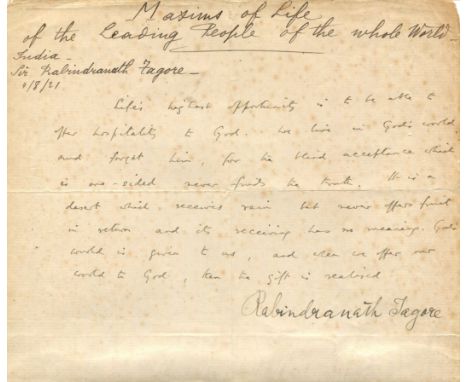 Maxims of Life
of the Leading People of the whole World -
India -
Sir Rabindranath Tagore -
4/8/21
Life's highest opportunity is to be able to
offer hospitality to God. We live in God's world
and forget him, for the blind acceptance which
is one-sided never finds the truth. It is a
desert which receives rain but never offers fruit
in return and its receiving has no meaning. God's
world is given to us, and when we offer our
world to God, then the gift is realised
Rabindranath Tagore